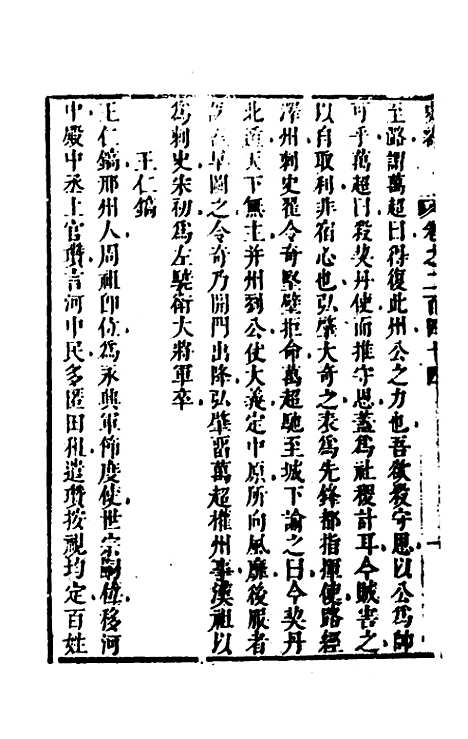 卷之二百四十四
至路謂萬超曰得復此州公之力也吾欲殺守恩以公為帥
可乎萬超曰殺契丹使而推守恩蓋為社稷計耳今賊害之
以自取利非宿心也弘肇大奇之表為先鋒都指揮使路經
澤州刺史翟令奇堅壁拒命萬超馳至城下諭之曰今契丹
北遁天下無主并州劉公仗大義定中原所向風靡後服者
早圖之令奇乃開門出降弘肇留萬超權州事漢祖以
為刺史宋初為左驍衛大將軍卒
王仁鎬
王仁鎬邢州人周祖即位為永興軍節度使世宗嗣位移河
中殿中丞上官瓚言河中民多匿田租遣瓚按視均定百姓